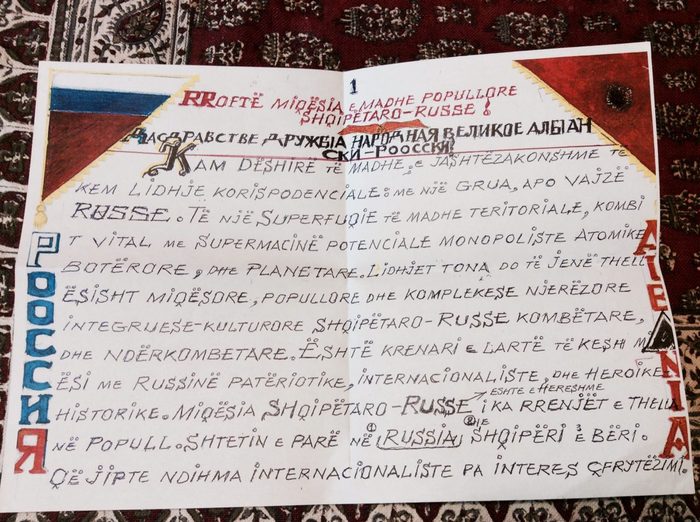 1
RROFTË MIQËSIA E MADHE POPULLORE
SHQIPËTARO-RUSSE!
ДАСДРАВСТВЕ ДРУЖВІА НАРОДНАЯ ВЕЛИКОЕ АЛБІАН
СКИ-РООССКИ!
KAM DËSHIRE TË MADHE, E JASHTËZAKONSHME TË
KEM LIDHJE KORISPODENCIALE: ME NJË GRUA, APO VAJZË
RUSSE. TË NJË SUPERFUQIE TË MADHE TERITORIALE, KOMBI
T VITAL ME SUPERMACINË POTENCIALE MONOPOLISTE ATOMIKE
BOTËRORE, DHE PLANETARE. LIDHJET TONA DO TË JENË THELL
ËSISHT MIQËSORE, POPULLORE DHE KOMPLEKESE NJERËZORE
INTEGRUESE-KULTURORE SHQIPËTARO-RUSSE KOMBËTARE,
DHE NDËRKOMBETARE. ËSHTË KRENARI E LARTË TË KESH MIQ
ËSI ME RUSSINË PATËRIOTIKE, INTERNACIONALISTE, DHE HEROIKE
ESHTE E HERESHME
HISTORIKE. MIQËSIA SHQIPËTARO-RUSSE I KA RRENJËT E THELLA
NË POPULL. SHTETIN E PARË NË RUSSIA SHQIPËRI E BËRI.
ÇË JIPTE NDIHMA INTERNACIONALISTE PA INTERES ÇFRYTËZIMI.
РОССИЯ